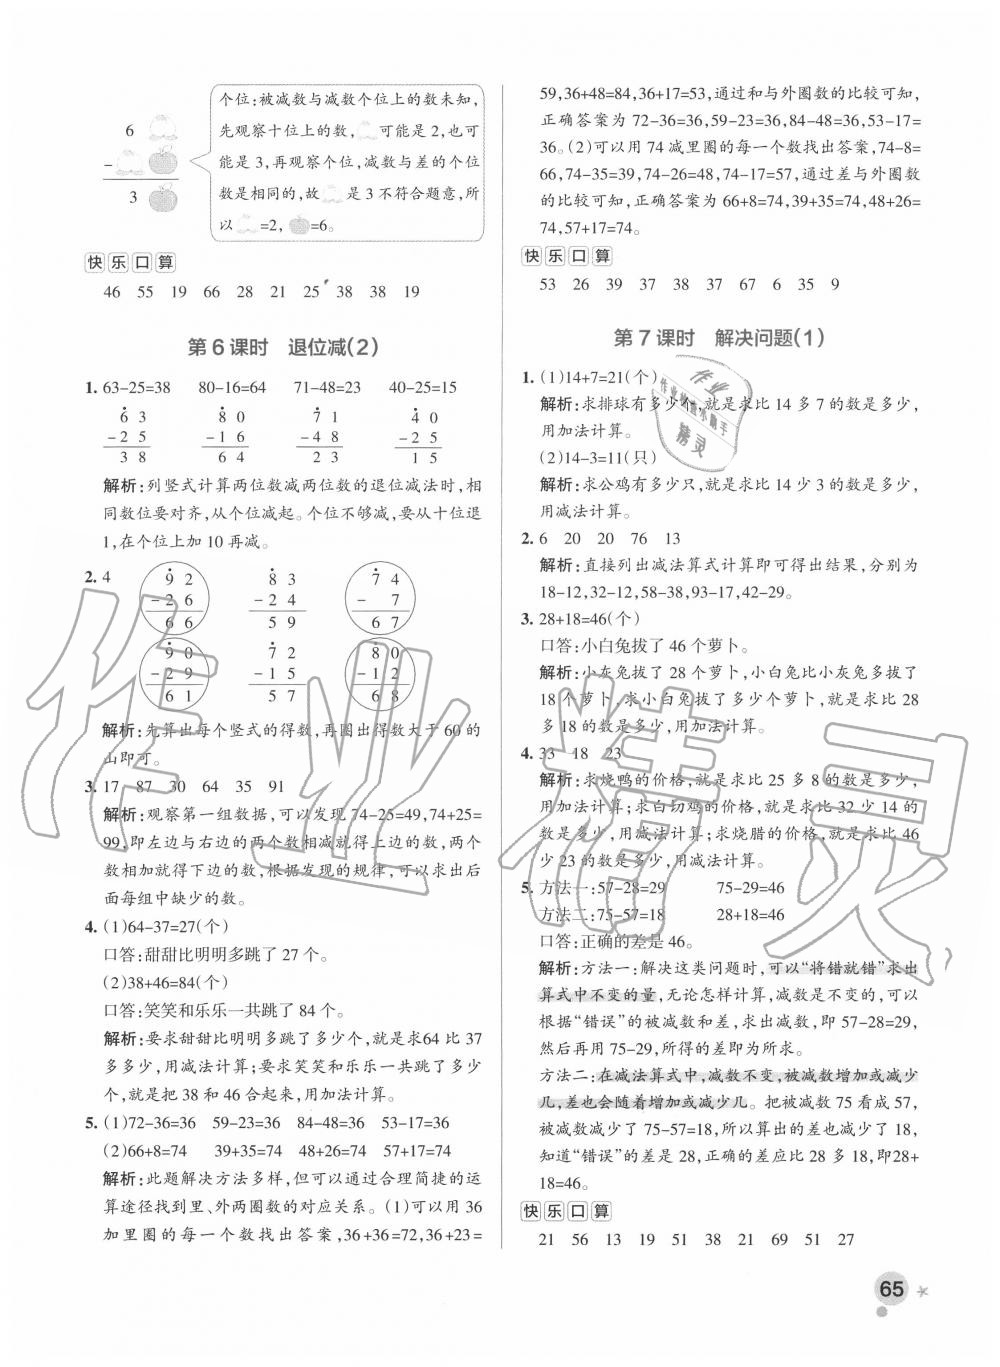 6
-
3
个位:被减数与减数个位上的数未知,
先观察十位上的数, 可能是2,也可
能是3,再观察个位,减数与差的个位
数是相同的,故 是3不符合题意,所
以 =2, =6。
快乐口算
46 55 19 66 28 21 25 38 38 19
第6课时 退位减(2)
1. 63-25=38 80-16=64 71-48=23 40-25=15
6 3 8 0 7 1 4 0
-2 5 -1 6 -4 8 -2 5
3 8 6 4 2 3 1 5
解析:列竖式计算两位数减两位数的退位减法时,相
同数位要对齐,从个位减起。个位不够减,要从十位退
1,在个位上加10再减。
2. 4
9 2 8 3 7 4
-2 6 -2 4 - 7
6 6 5 9 6 7
9 0 7 2 8 0
-2 9 -1 5 -1 2
6 1 5 7 6 8
解析:先算出每个竖式的得数,再圈出得数大于60的
山即可。
3. 17 87 30 64 35 91
解析:观察第一组数据,可以发现74-25=49,74+25=
99,即左边与右边的两个数相减就得上边的数,两个
数相加就得下边的数,根据发现的规律,可以求出后
面每组中缺少的数。
4. (1)64-37=27(个)
口答:甜甜比明明多跳了27个。
(2)38+46=84(个)
口答:笑笑和乐乐一共跳了84个。
解析:要求甜甜比明明多跳了多少个,就是求64比37
多多少,用减法计算;要求笑笑和乐乐一共跳了多少
个,就是把38和46合起来,用加法计算。
5. (1)72-36=36 59-23=36 84-48=36 53-17=36
(2)66+8=74 39+35=74 48+26=74 57+17=74
解析:此题解决方法多样,但可以通过合理简捷的运
算途径找到里、外两圈数的对应关系。(1)可以用36
加里圈的每一个数找出答案,36+36=72,36+23=
59,36+48=84,36+17=53,通过和与外圈数的比较可知,
正确答案为72-36=36,59-23=36,84-48=36,53-17=
36。(2)可以用74减里圈的每一个数找出答案,74-8=
66,74-35=39,74-26=48,74-17=57,通过差与外圈数
的比较可知,正确答案为66+8=74,39+35=74,48+26=
74,57+17=74。
快乐口算
53 26 39 37 38 37 67 6 35 9
第7课时 解决问题(1)
1. (1)14+7=21(个)
解析:求排球有多少个,就是求比14多7的数是多少,
用加法计算。
(2)14-3=11(只)
解析:求公鸡有多少只,就是求比14少3的数是多少,
用减法计算。
2. 6 20 20 76 13
解析:直接列出减法算式计算即可得出结果,分别为
18-12,32-12,58-38,93-17,42-29。
3. 28+18=46(个)
口答:小白兔拔了46个萝卜。
解析:小灰兔拔了28个萝卜,小白兔比小灰兔多拔了
18个萝卜,求小白兔拔了多少个萝卜,就是求比28
多18的数是多少,用加法计算。
4. 33 18 23
解析:求烧鸭的价格,就是求比25多8的数是多少,
用加法计算;求白切鸡的价格,就是求比32少14的
数是多少,用减法计算;求烧腊的价格,就是求比46
少23的数是多少,用减法计算。
5. 方法一:57-28=29 75-29=46
方法二:75-57=18 28+18=46
口答:正确的差是46。
解析:方法一:解决这类问题时,可以“将错就错”求出
算式中不变的量,无论怎样计算,减数是不变的,可以
根据“错误”的被减数和差,求出减数,即57-28=29,
然后再用75-29,所得的差即为所求。
方法二:在减法算式中,减数不变,被减数增加或减少
几,差也会随着增加或减少几。把被减数75看成57,
被减数减少了75-57=18,所以算出的差也少了18,
知道“错误”的差是28,正确的差应比28多18,即28+
18=46。
快乐口算
21 56 13 19 51 38 21 69 51 27
65
作业精灵
作业
作业检查小助手
精灵